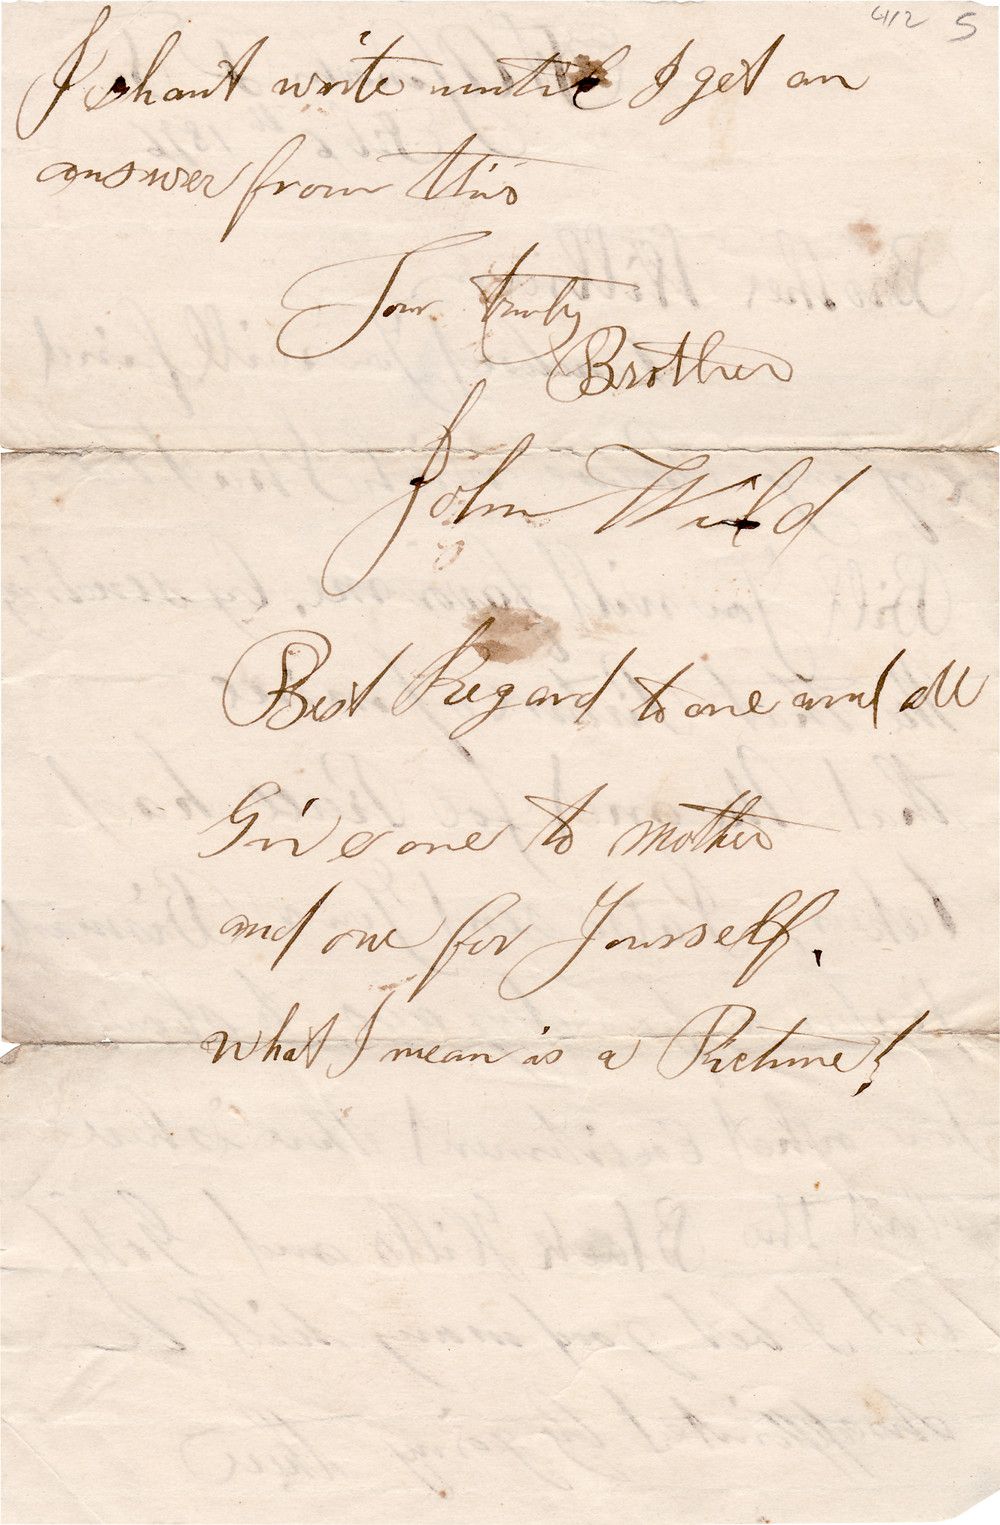 412 5
I shant write until I get an
answer from this
Your truly
Brother
John Wild
Best Regard to one and all
Give one to mother
and one for Yourself.
what I mean is a Picture!